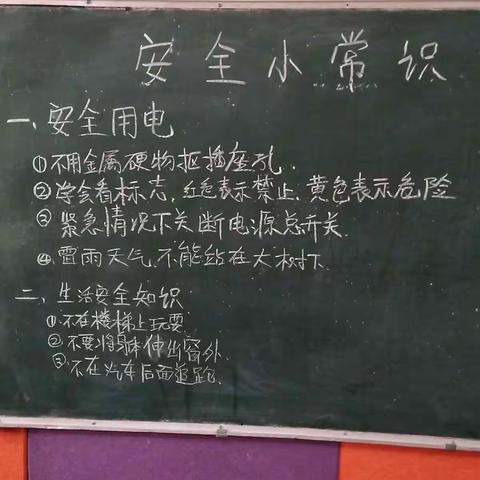 安全小常识
一、安全用电
①不用金属硬物抠插座孔.
②学会看标志,红色表示禁止,黄色表示危险
③紧急情况下关断电源总开关.
④雷雨天气,不能站在大树下.
二、生活安全知识
①不在楼梯上玩耍
②不要将身体伸出窗外.
③不在汽车后面追跑.